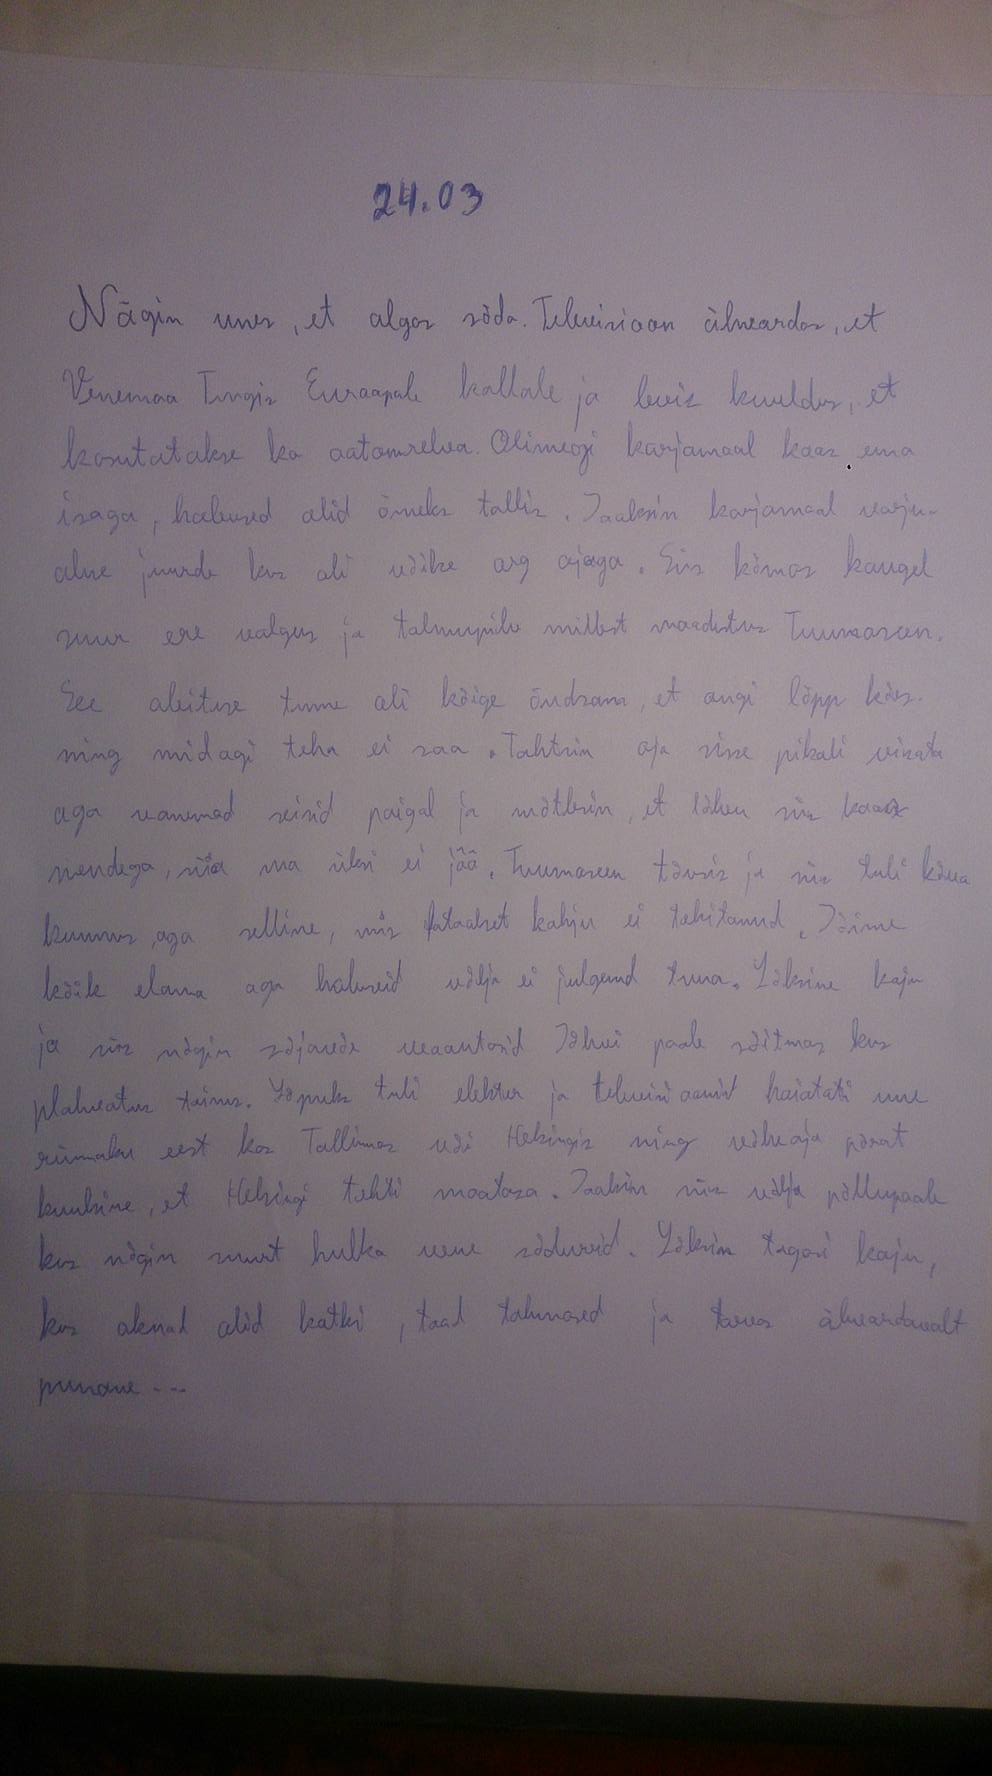 24.03
Nägin unes, et algas sõda. Televisioon ähvardas, et
Venemaa Tungis Euroopale kallale ja levis kuuldus, et
kasutatakse ka aatomrelva. Olimegi karjamaal koos ema
isaga, hobused olid õneks tallis. Jooksin karjamaal varju-
aluse juurde kus oli väike org ojaga. Siis kõmas kaugel
suur ere valgus ja tolmupilv millest moodustus Tuumaseen.
See abituse tunne oli kõige õudsam, et ongi lõpp käes.
ning midagi teha ei saa. Tahtsin oja sisse pikali visata
aga vanemad seisid paigal ja mõtlesin, et lähen siis koos
nendega, siis ma üksi ei jää. Tuumaseen tõusis ja siis tuli kõva
kuumus, aga selline, mis fataalset kahju ei tekitanud. Jäime
kõik elama aga hobuseid välja ei julgend tuua. Läksime koju
ja siis nägin sõjaväe veoautosid Jõhvi poole sõitmas kus
plahvatus toimus. Lõpuks tuli elekter ja televisioonid hoiatati uue
rünnaku eest kas Tallinnas või Helsingis ning vähe aja pärast
kuulsime, et Helsingi tehti maatasa. Jooksin siis välja põllupeale
kus nägin suurt hulka vene sõdureid. Läksin tagasi koju,
kus aknad olid katki, toad tolmused ja taevas ähvardavalt
punane...